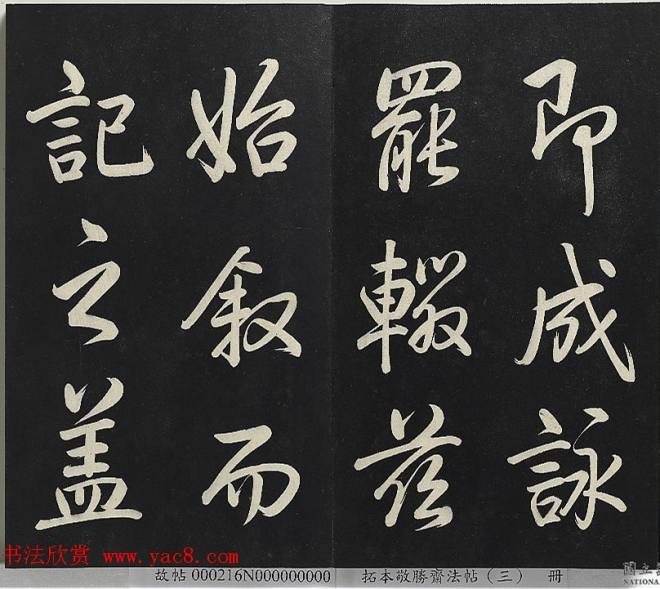 即成詠
罷輟茲
始叙而
記之盖
书法欣赏 www.yac8.com
故帖 000216N000000000
拓本敬勝齋法帖（三） 冊
國立
NATIONA